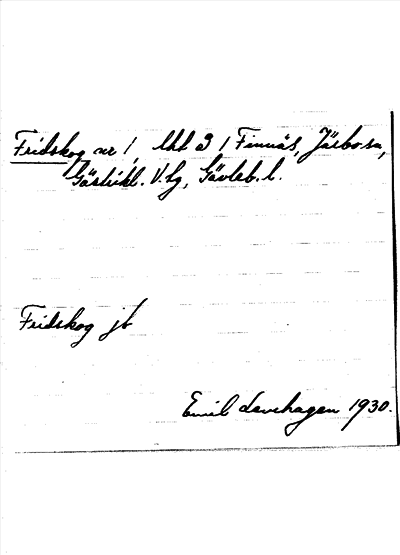 Fridskog nr 1, lht 3 / Finnäs, Järbo sn,
Gästrikl. V. tg, Gävleb. l.
Fridskog jb
Emil Levehagen 1930.